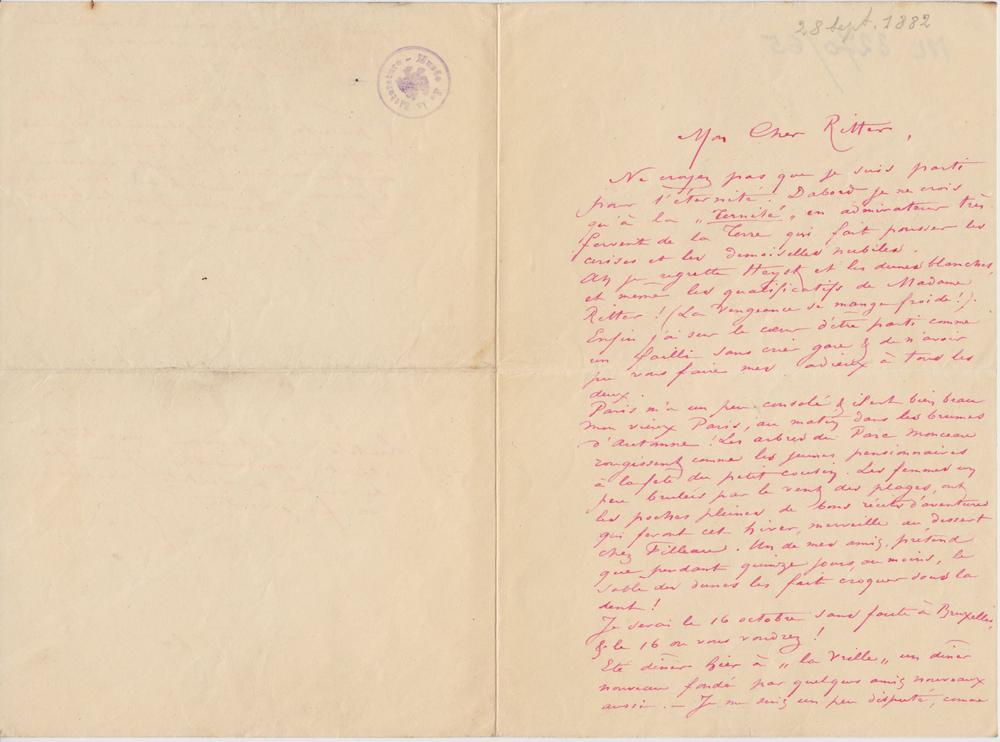 28 Sept. 1882
ML 3270/65
Musée de la Littérature
Mon Cher Ritter,
Ne croyez pas que je suis parti
pour l'éternité. Dabord je ne crois
qu'à la „Ternité„ en admirateur très
fervent de la Terre qui fait pousser les
cerises et les demoiselles nubiles.
Ah je regrette Heyst et les dunes blanches,
et même les qualificatifs de Madame
Ritter ! (La vengeance se mange froide !).
Enfin j'ai sur le cœur d'être parti comme
un failli sans crier gare & de n'avoir
pu vous faire mes adieux à tous les
deux.
Paris m'a un peu consolé & il est bien beau
mon vieux Paris, au matin dans les brumes
d'Automne ! Les arbres du Parc Monceau
rougissent comme les jeunes pensionnaires
à la fête du petit cousin. Les femmes un
peu brulées par le vent des plages, ont
les poches pleines de bons récits d'aventures
qui feront cet hiver, merveille au dessert
chez Filleau. Un de mes amis, prétend
que pendant quinze jours, au moins, le
sable des dunes les fait croquer sous la
dent !
Je serai le 16 octobre sans faute à Bruxelles,
& le 16 où vous voudrez !
Eté dîner hier à „la Vrille„ un dîner
nouveau fondé par quelques amis nouveaux
aussi. — Je me suis un peu disputé, comme